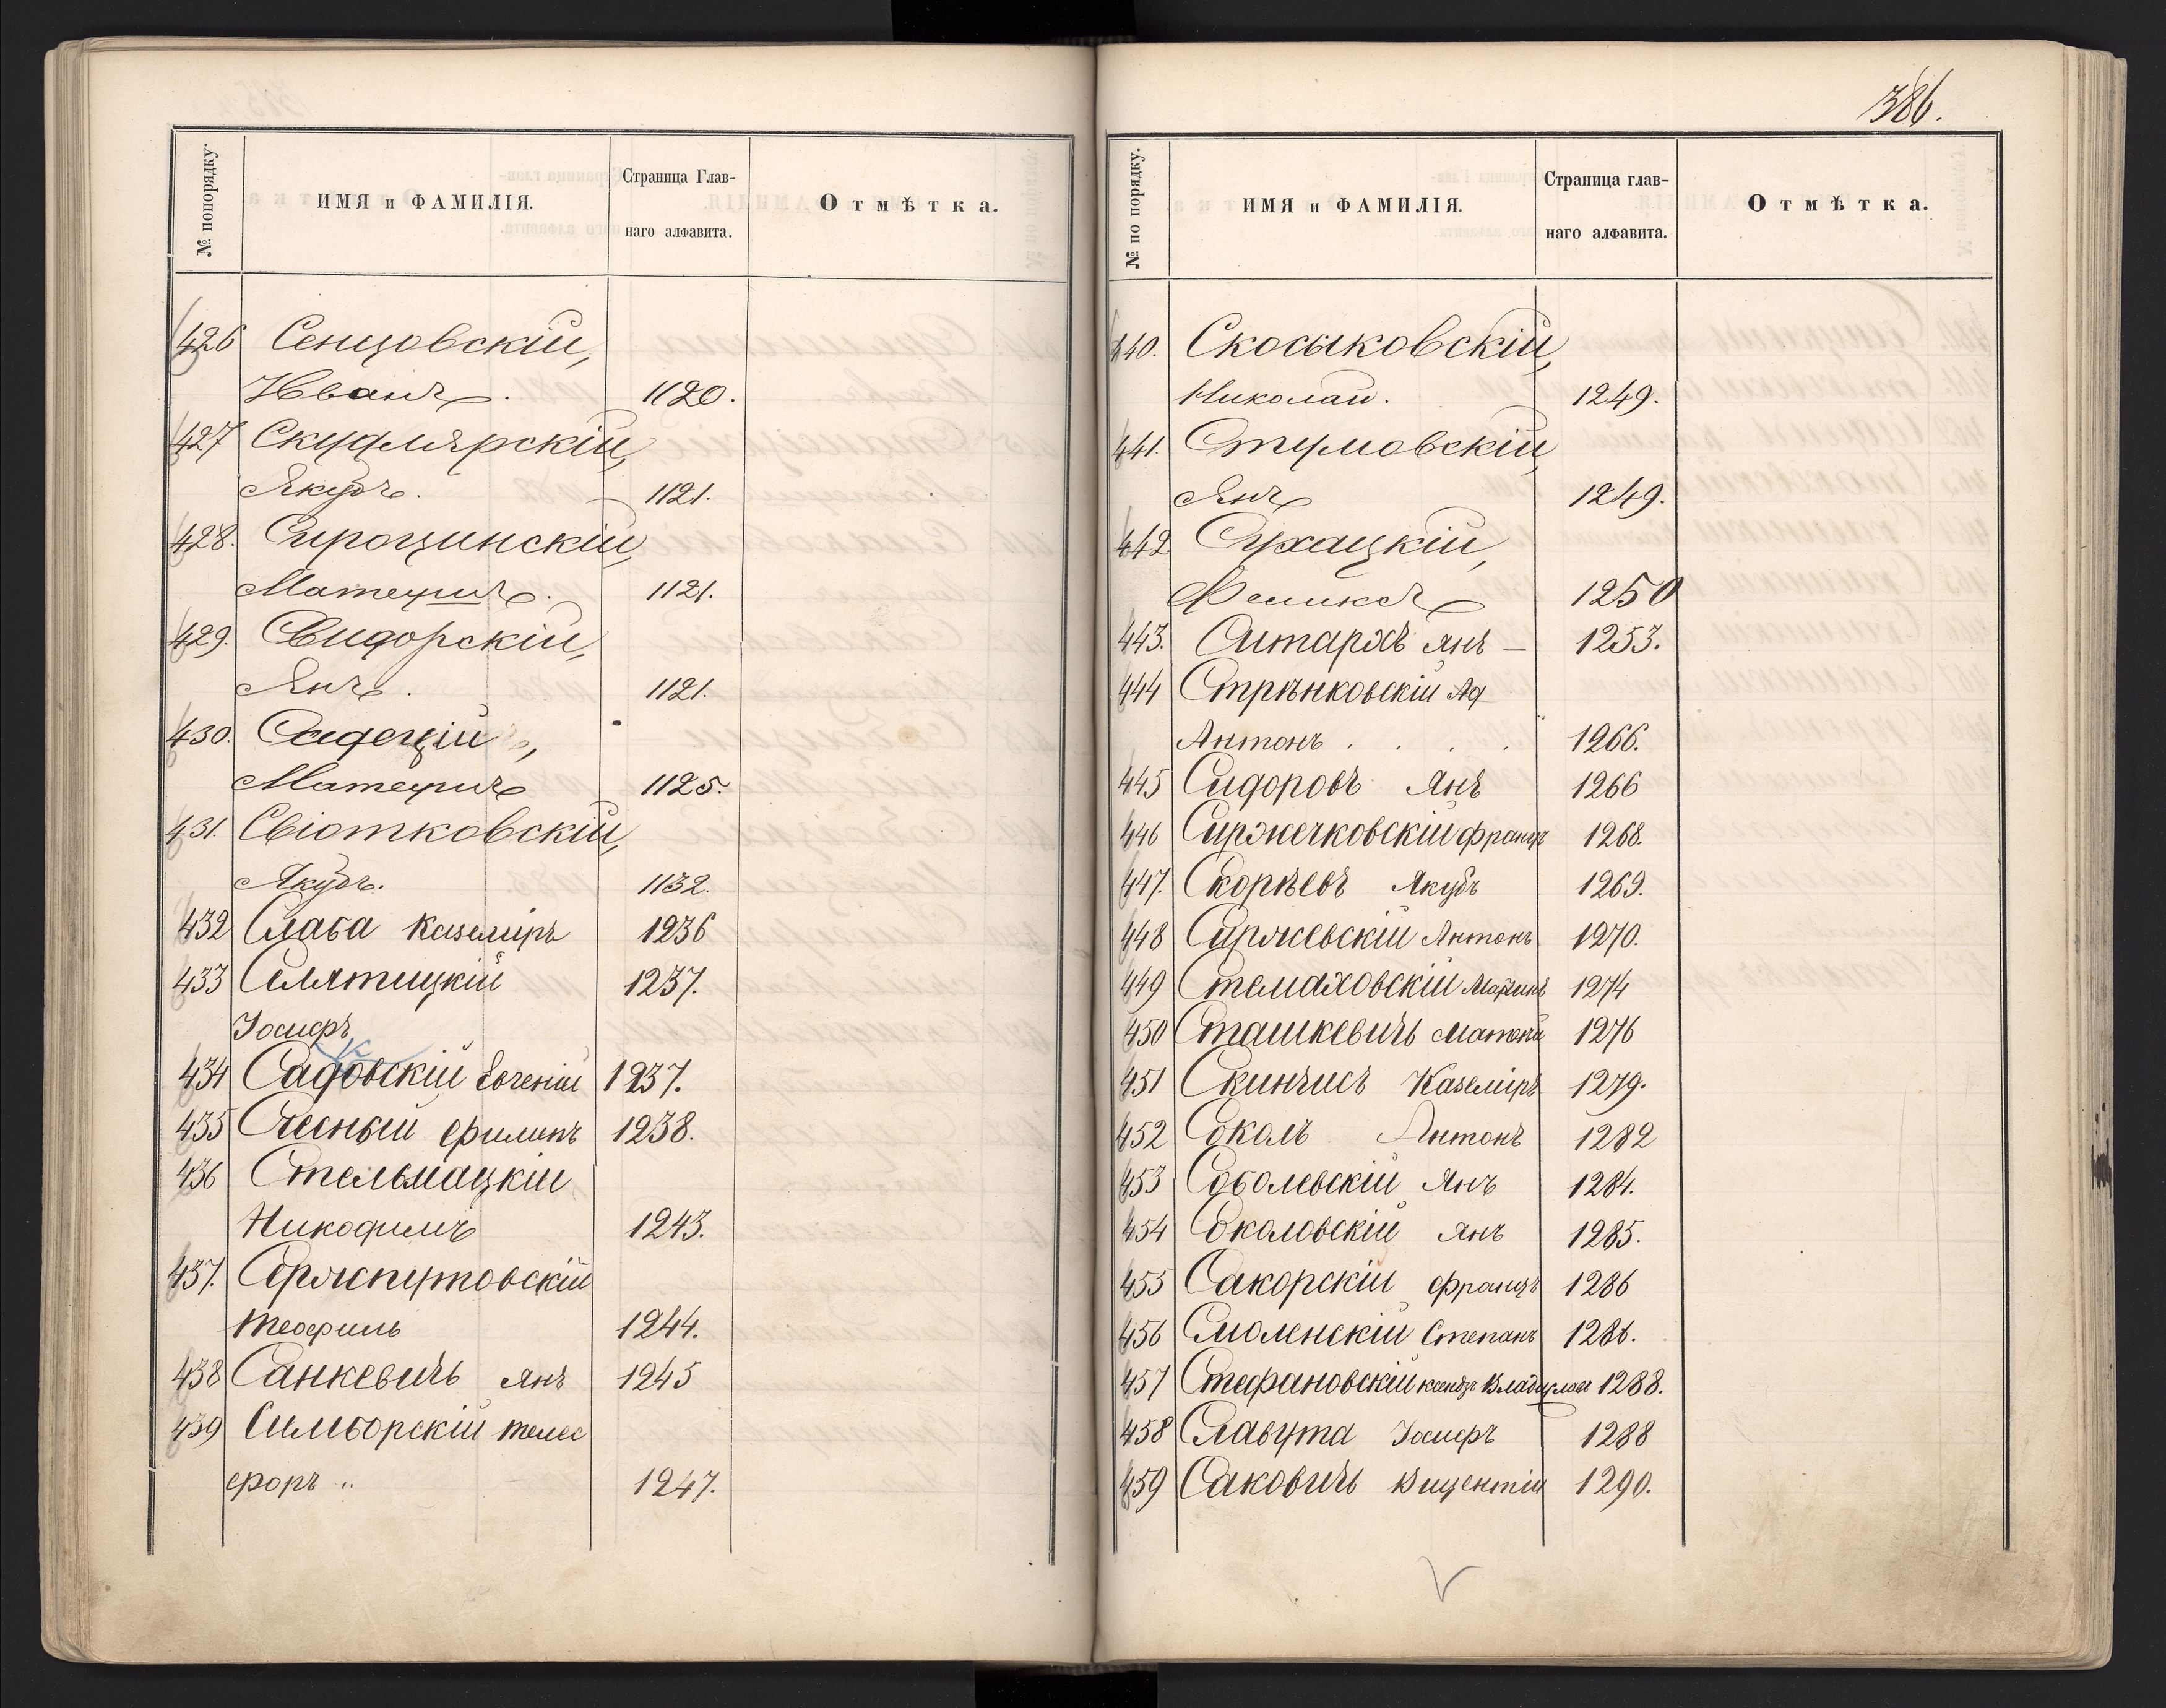 386.
№ попорядку.
ИМЯ и ФАМИЛІЯ.
Страница Глав-
наго алфавита.
Отмѣтка.
426 Сенцовскій,
Иванъ. 1120.
427 Скудлярскій,
Якубъ. 1121.
428. Сироцинскій,
Матеушъ. 1121.
429. Свидорскій,
Янъ. 1121.
430. Садецкій,
Матеушъ 1125.
431. Свіотковскій,
Якубъ. 1132.
432 Слаба Каземіръ 1236
433 Слятицкій 1237.
Іосифъ
434 Садовскій Евгеній 1237.
435 Счесный Филипъ 1238.
436 Стельмацкій
Никодимъ 1243.
437. Сржспутовскій
Теофиль 1244.
438 Санкевичь Янъ 1245
439 Сильборскій Телес
форъ 1247.
№ по порядку.
ИМЯ и ФАМИЛІЯ.
Страница глав-
наго алфавита.
Отмѣтка.
440. Скосыковскій,
Николай. 1249.
441. Стумовскій,
Янъ 1249.
442 Сухацкій,
Феликсъ 1250
443. Ситархъ Янъ — 1253.
444 Стрѣнковскій Ад
Антонъ . . . . 1266.
445 Сидоровъ Янъ 1266
446 Сиржечковскій Францъ 1268.
447. Скорѣевъ Якубъ 1269.
448 Сиржевскій Антонъ 1270.
449 Стемаховскій Марцинъ 1274
450 Сташкевичь Матеуш 1276
451 Скинчисъ Каземіръ 1279.
452 Соколъ Антонъ 1282
453 Соболевскій Янъ 1284.
454 Соколовскій Янъ 1285.
455 Сакорскій Францъ 1286
456 Смоленскій Степанъ 1286.
457 Стефановскій ксендзъ Владиславъ 1288.
458 Славута Іосифъ 1288
459 Саковичь Вицентій 1290.